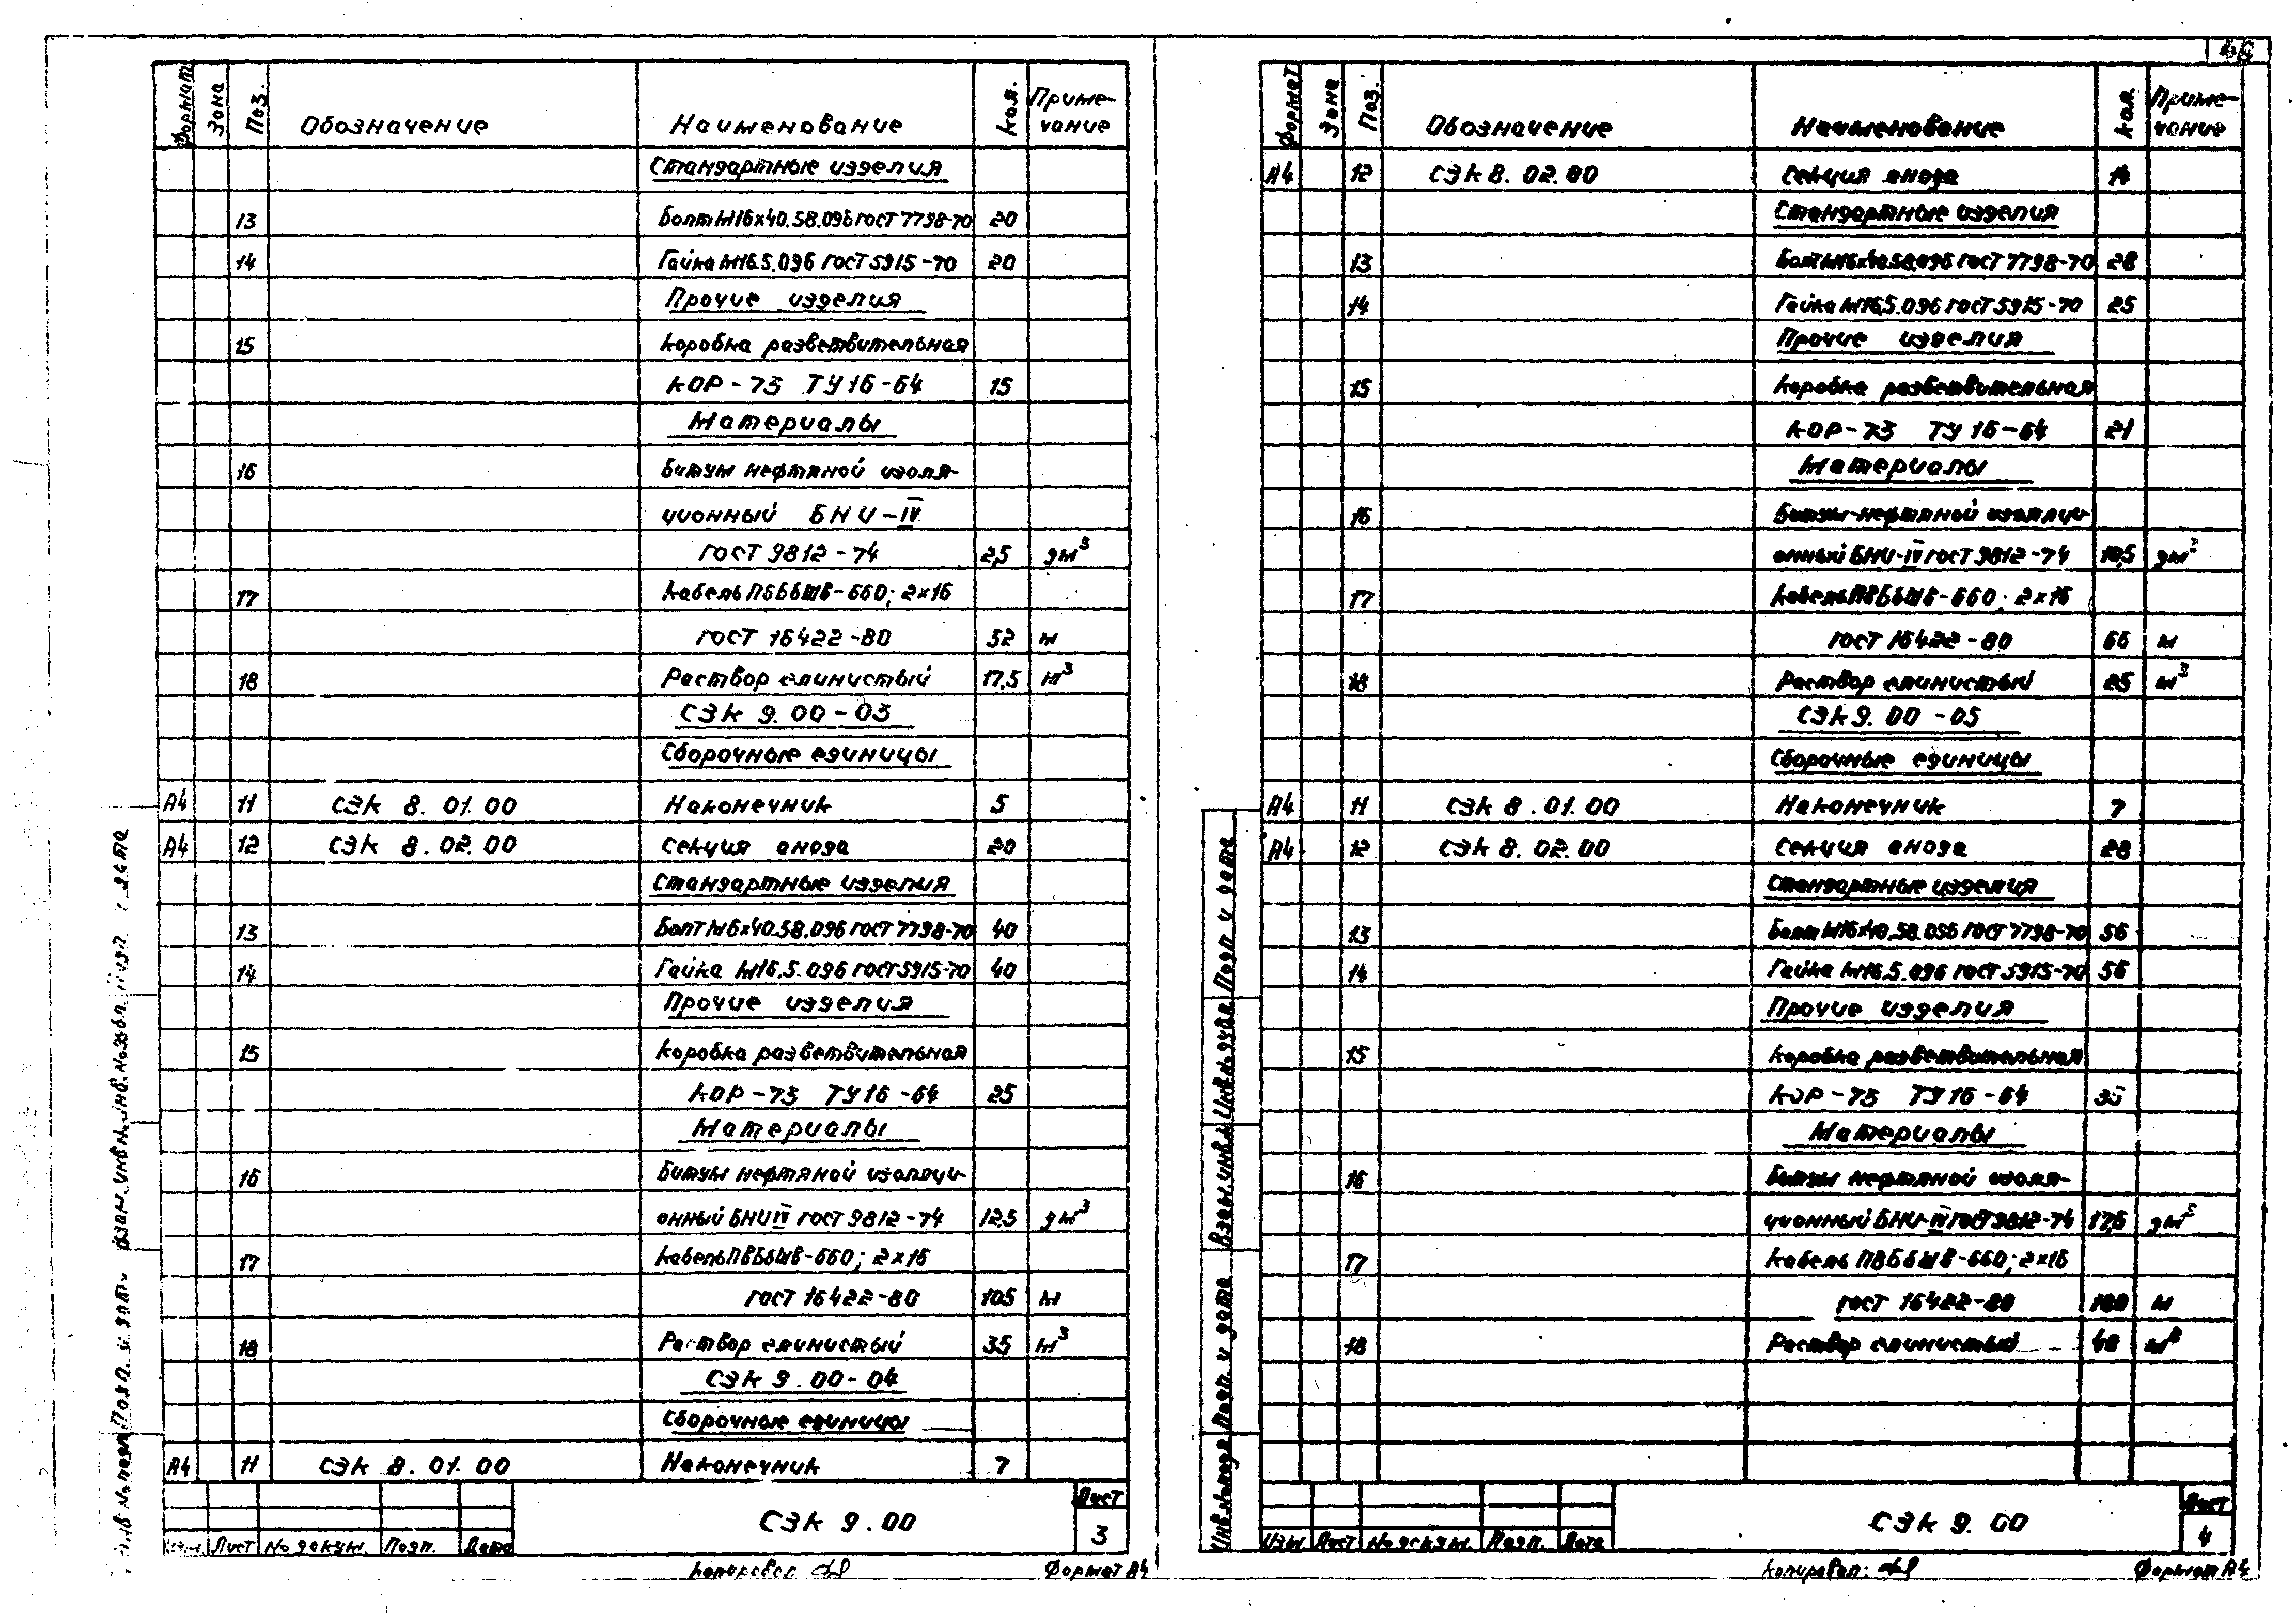 Формат Зона Поз. Обозначение Наименование Кол. Приме-
чание
Стандартные изделия
13 Болт М16х40.58.096 ГОСТ 7798-70 20
14 Гайка М16.5.096 ГОСТ 5915-70 20
Прочие изделия
15 Коробка разветвительная
КОР-73 ТУ16-64 15
Материалы
16 Битум нефтяной изоля-
ционный БНИ-IV
ГОСТ 9812-74 2,5 дм³
17 Кабель ПБбШв-660; 2х16
ГОСТ 16422-80 52 м
18 Раствор глинистый 17,5 м³
СЗК 9.00-03
Сборочные единицы
А4 11 СЗК 8.01.00 Наконечник 5
А4 12 СЗК 8.02.00 Секция анода 20
Стандартные изделия
13 Болт М16х40.58.096 ГОСТ 7798-70 40
14 Гайка М16.5.096 ГОСТ 5915-70 40
Прочие изделия
15 Коробка разветвительная
КОР-73 ТУ16-64 25
Материалы
16 Битум нефтяной изоляци-
онный БНИ IV ГОСТ 9812-74 12,5 дм³
17 Кабель ПВБбШв-660; 2х16
ГОСТ 16422-80 105 м
18 Раствор глинистый 35 м³
СЗК 9.00-04
Сборочные единицы
А4 11 СЗК 8.01.00 Наконечник 7
Изм. Лист № докум. Подп. Дата
СЗК 9.00
Лист
3
Копировал
Формат А4
Инв. № подл. Подп. и дата Взам. инв. № Инв. № дубл. Подп. и дата
Формат Зона Поз. Обозначение Наименование Кол. Приме-
чание
А4 12 СЗК 8.02.00 Секция анода 14
Стандартные изделия
13 Болт М16х40.58.096 ГОСТ 7798-70 28
14 Гайка М16.5.096 ГОСТ 5915-70 25
Прочие изделия
15 Коробка разветвительная
КОР-73 ТУ16-64 21
Материалы
16 Битум нефтяной изоляци-
онный БНИ-IV ГОСТ 9812-74 10,5 дм³
17 Кабель ПВБбШв-660; 2х16
ГОСТ 16422-80 66 м
18 Раствор глинистый 25 м³
СЗК 9.00-05
Сборочные единицы
А4 11 СЗК 8.01.00 Наконечник 7
А4 12 СЗК 8.02.00 Секция анода 28
Стандартные изделия
13 Болт М16х40.58.096 ГОСТ 7798-70 56
14 Гайка М16.5.096 ГОСТ 5915-70 56
Прочие изделия
15 Коробка разветвительная
КОР-73 ТУ16-64 35
Материалы
16 Битум нефтяной изоля-
ционный БНИ-IV ГОСТ 9812-74 17,5 дм³
17 Кабель ПВБбШв-660; 2х16
ГОСТ 16422-80 м
18 Раствор глинистый 48 м³
Изм. Лист № докум. Подп. Дата
СЗК 9.00
Лист
4
Копировал:
Формат А4
Инв. № подл. Подп. и дата Взам. инв. № Инв. № дубл. Подп. и дата